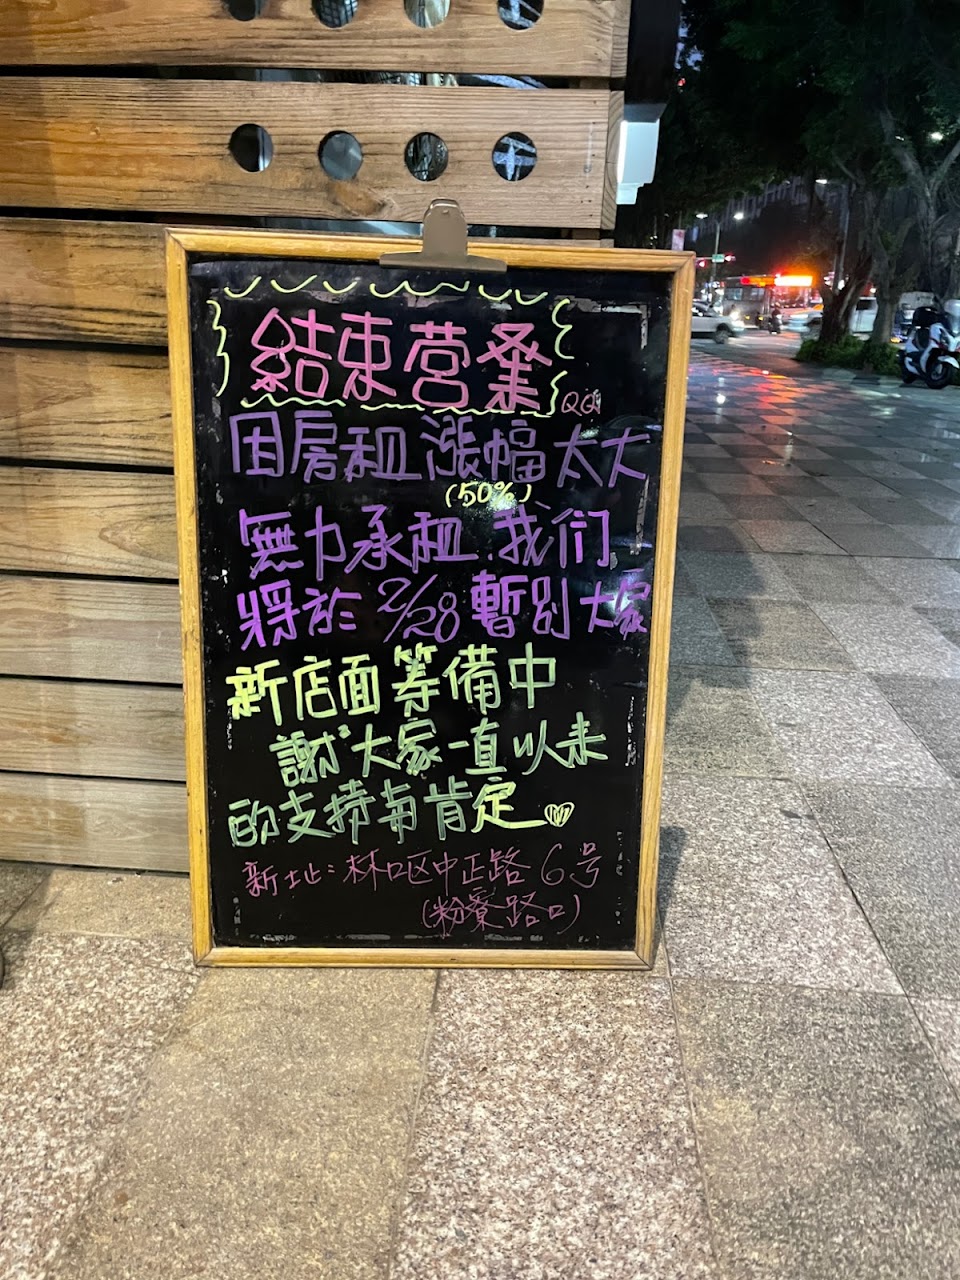 結束營業 QQ
因房租漲幅太大
(50%)
無力承租.我们
將於 2/28 暫別大家
新店面筹備中
謝大家一直以来
的支持與肯定
新址:林口区中正路6号
(粉寮路口)